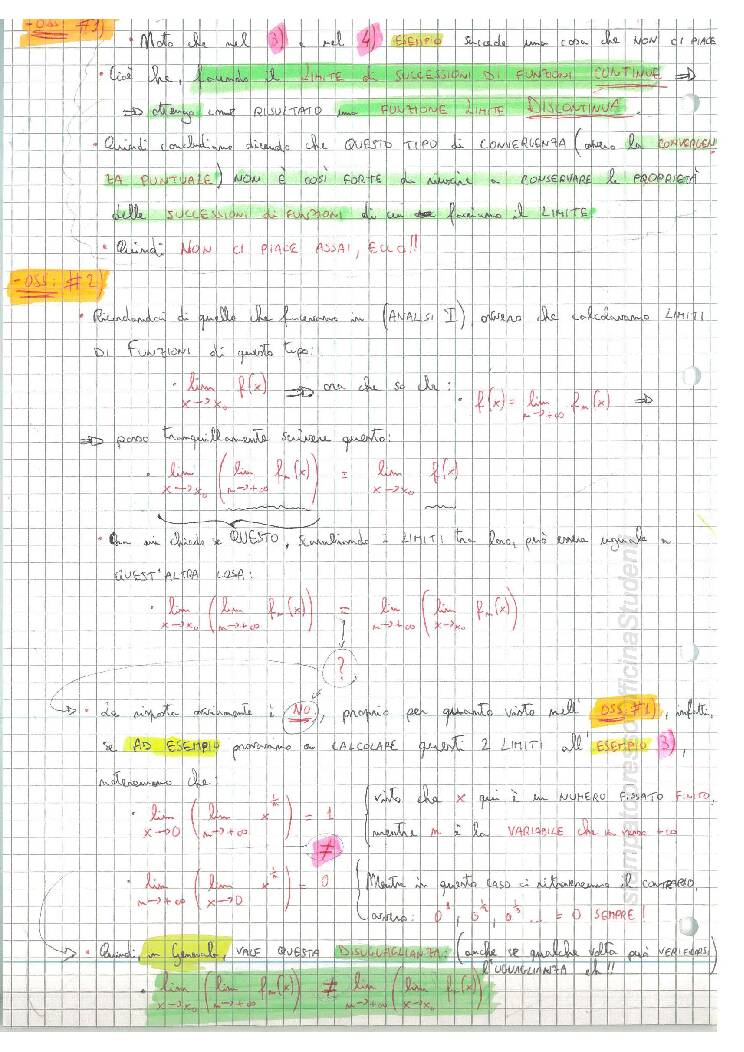 - OSS: #1)
• Noto che nel 3) e nel 4) ESEMPIO succede una cosa che NON CI PIACE
• Cioè che, facendo il LIMITE di SUCCESSIONI DI FUNZIONI CONTINUE ⇒
⇒ ottengo come RISULTATO una FUNZIONE LIMITE DISCONTINUA.
• Quindi concludiamo dicendo che QUESTO TIPO di CONVERGENZA (ovvero la CONVERGEN
ZA PUNTUALE) NON È COSÌ FORTE da riuscire a CONSERVARE le PROPRIETÀ
delle SUCCESSIONI di FUNZIONI di cui facciamo il LIMITE
• Quindi NON CI PIACE ASSAI, ECCO!!
- OSS: #2)
• Ricordandoci di quello che facevamo in (ANALISI I), ovvero che calcolavamo LIMITI
DI FUNZIONI di questo tipo:
• lim x→x₀ f(x) ⇒ ora che so che: • f(x) = lim n→+∞ fₙ(x) ⇒
⇒ posso tranquillamente scrivere questo:
• lim x→x₀ (lim n→+∞ fₙ(x)) = lim x→x₀ f(x)
• Ora mi chiedo se QUESTO, scambiando i LIMITI tra loro, può essere uguale a
QUEST'ALTRA COSA:
• lim x→x₀ (lim n→+∞ fₙ(x)) = lim n→+∞ (lim x→x₀ fₙ(x))
?
• La risposta ovviamente è NO, proprio per quanto visto nell' OSS #1), infatti,
se AD ESEMPIO proviamo a CALCOLARE questi 2 LIMITI all' ESEMPIO 3),
noteremo che:
• lim x→0 (lim n→+∞ x^(1/n)) = 1 (visto che x qui è un NUMERO FISSATO FINITO,
mentre n è la VARIABILE che va verso +∞
≠
• lim n→+∞ (lim x→0 x^(1/n)) = 0 (Mentre in questo caso ci ritroveremo il CONTRARIO,
ovvero: 0¹, 0^(1/2), 0^(1/3) ... = 0 SEMPRE!
• Quindi, in Generale, VALE QUESTA DISUGUAGLIANZA: (anche se qualche volta può VERIFICARSI
l'UGUAGLIANZA eh!!)
• lim x→x₀ (lim n→+∞ fₙ(x)) ≠ lim n→+∞ (lim x→x₀ fₙ(x))